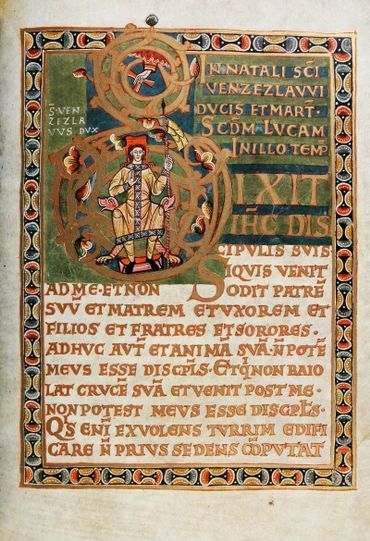 IN NATALI SCI
VENZEZLAVVI
DUCIS ET MART·
SCDM LUCAM
IN ILLO TEMP
S·VEN
ZEZLA
VVS DVX
DIXIT
IHC DIS
CIPULIS SUIS
SIQUIS VENIT
AD ME·ET NON ODIT PATRE
SVV ET MATREM ET UXOREM ET
FILIOS ET FRATRES ET SORORES·
ADHUC AVT ET ANIMA SVA·N POTE
MEUS ESSE DISCPLS· ET Q NON BAIO
LAT CRUCE SVA ET VENIT POST ME·
NON POTEST MEUS ESSE DISCPLS·
QS ENI EX VOLENS TURRIM EDIFI
CARE N PRIUS SEDENS COPUTAT